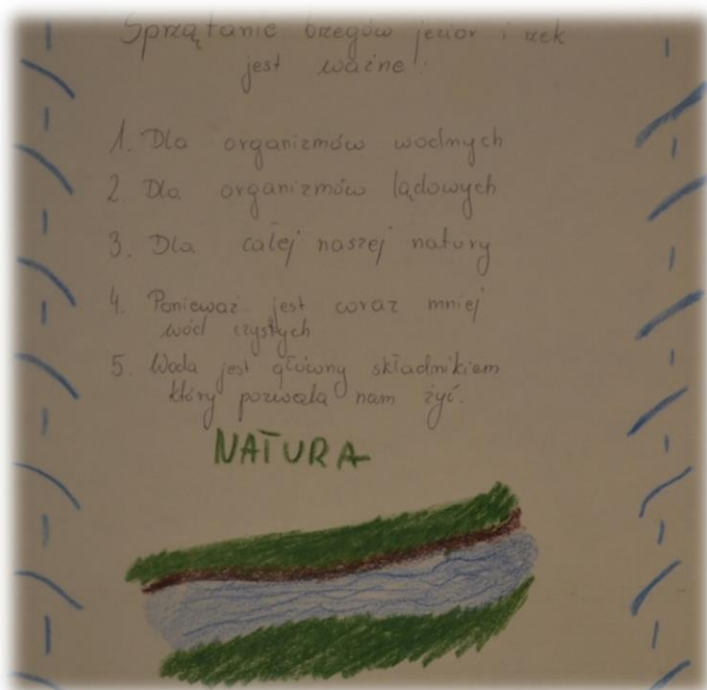 Sprzątanie brzegów jezior i rzek
jest ważne!
1. Dla organizmów wodnych
2. Dla organizmów lądowych
3. Dla całej naszej natury
4. Ponieważ jest coraz mniej
wód czystych
5. Woda jest główny składnikiem
który pozwala nam żyć.
NATURA